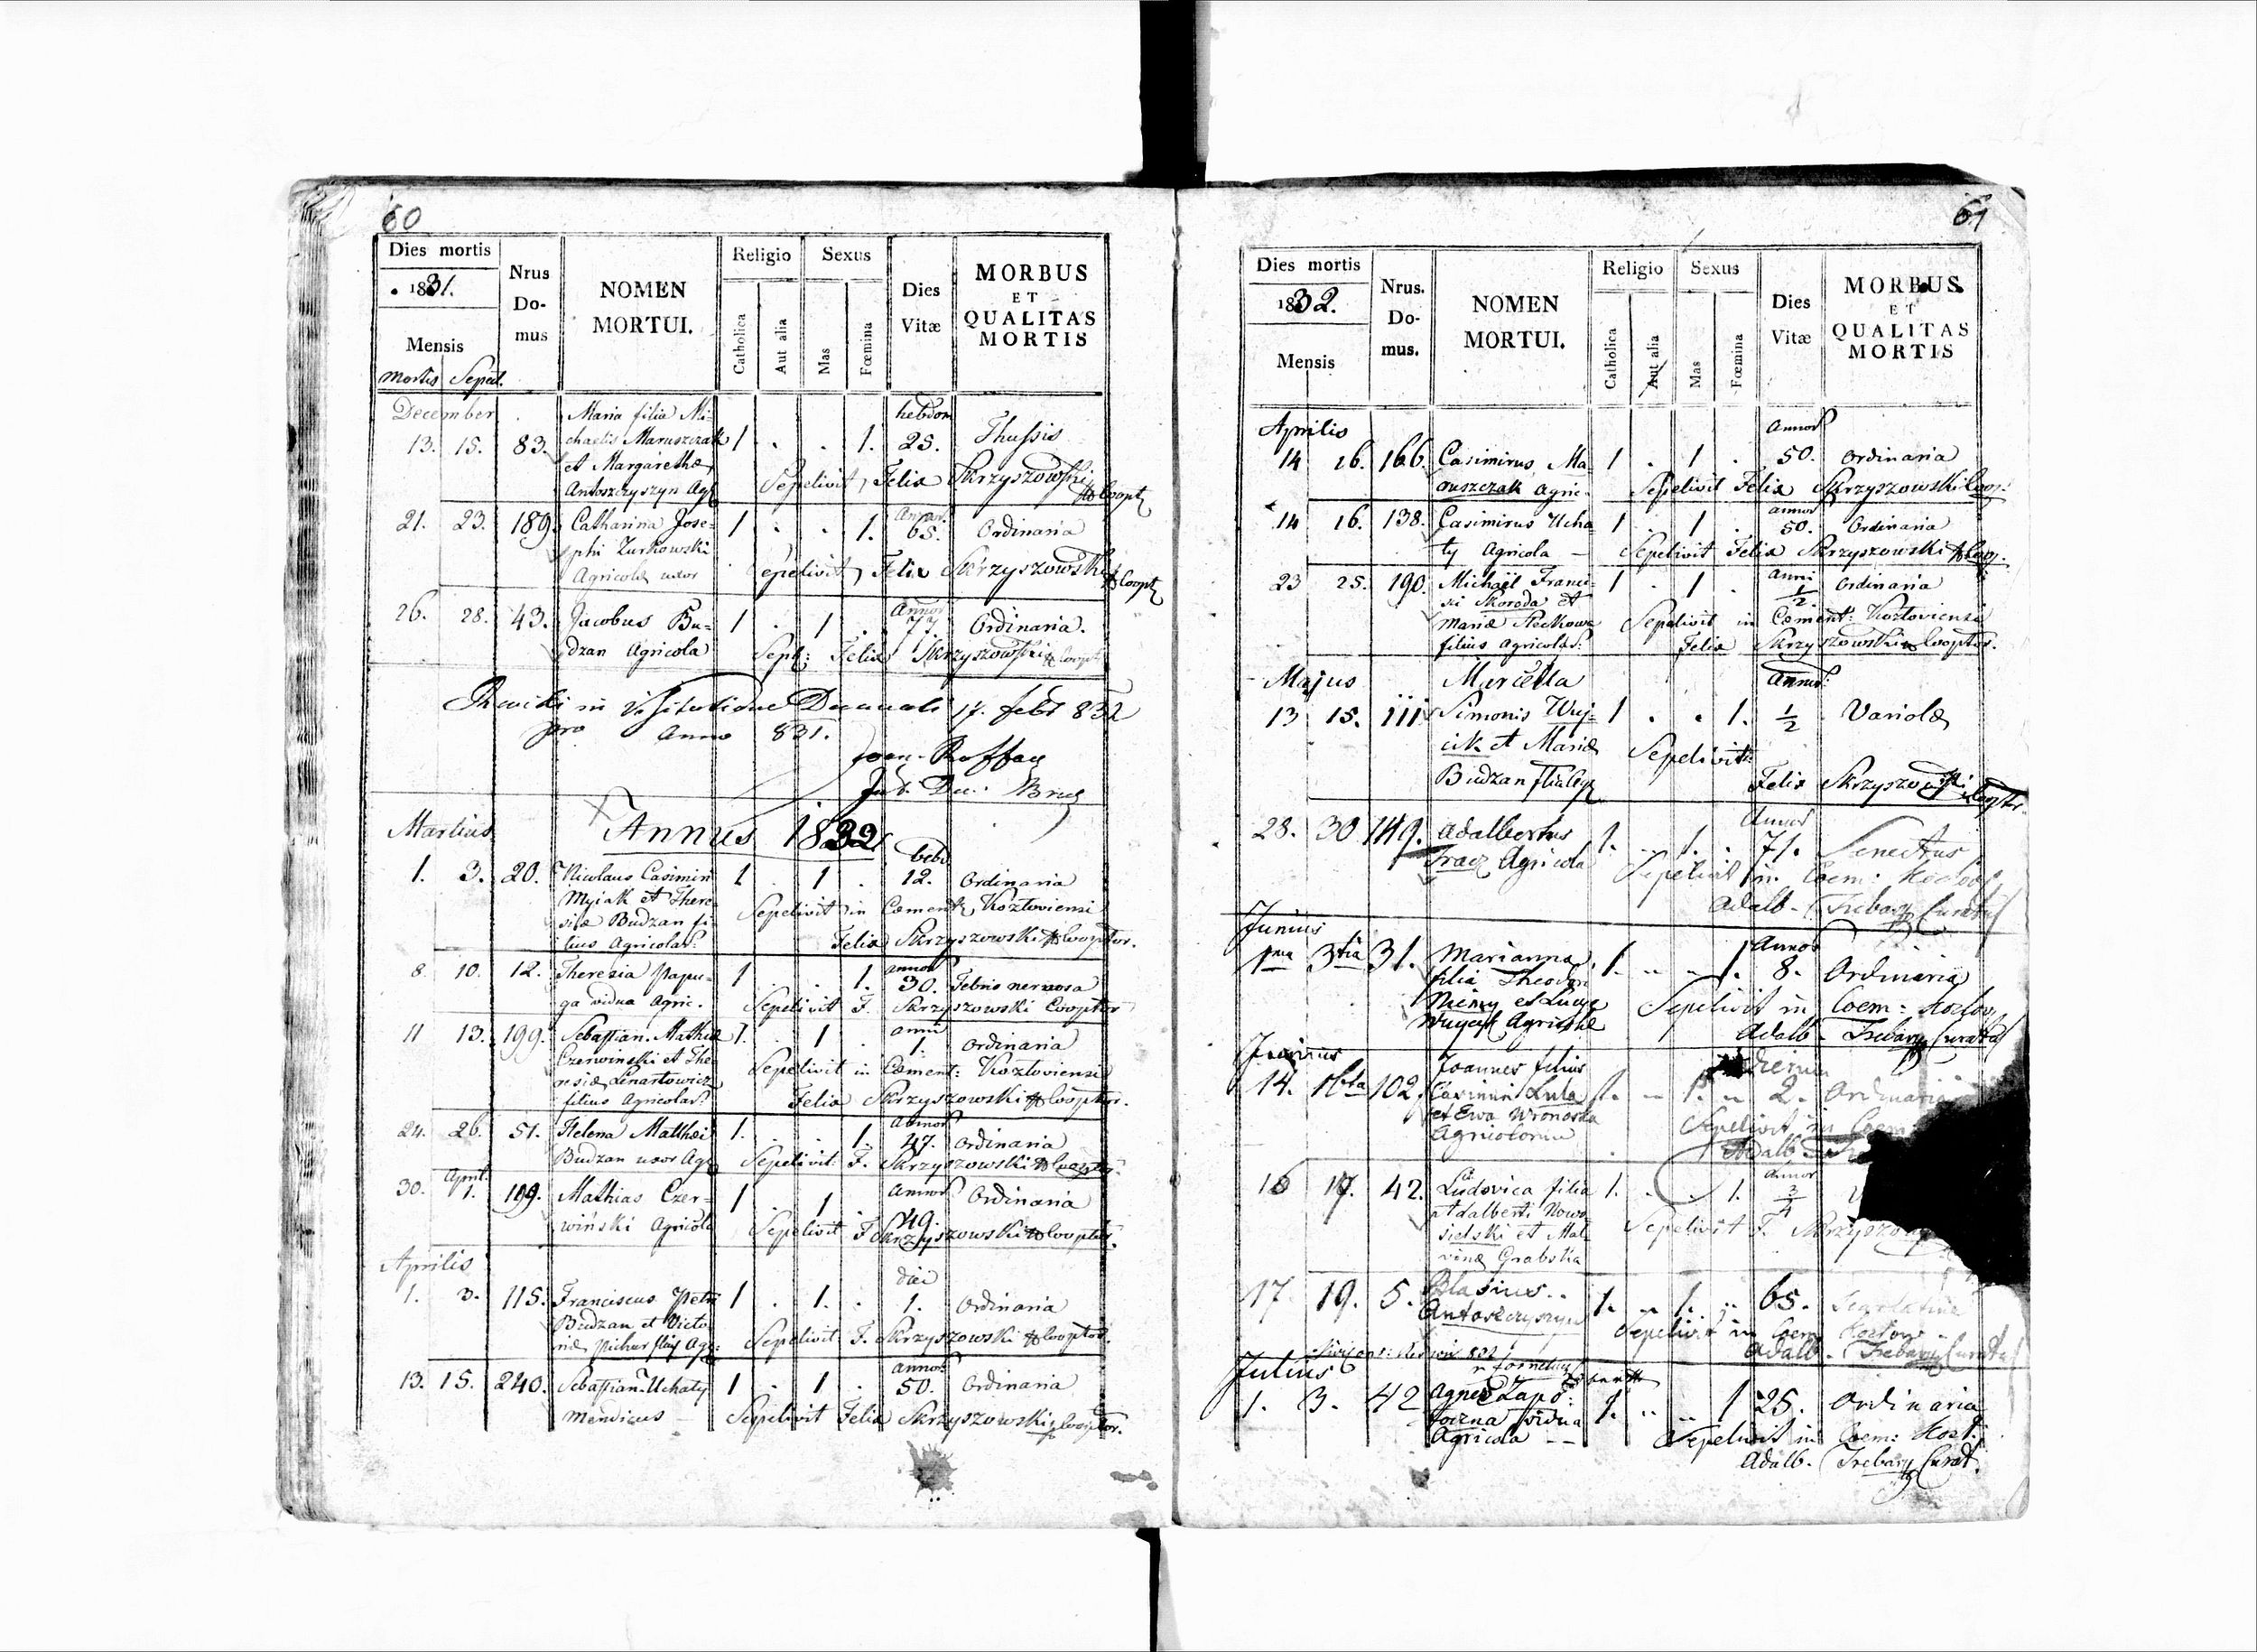 60
Dies mortis
1831.
Mensis
Mortis Sepul.
Nrus Do- mus
NOMEN MORTUI.
Religio
Catholica
Aut alia
Sexus
Mas
Fœmina
Dies Vitæ
MORBUS ET QUALITAS MORTIS
December
Maria filia Mi= hebdom
13. 15. 83. chaelis Maruszczak 1 . . 1. 25. Thussis
et Margarethæ
Antoszczyszyn Agr Sepelivit Felix Skrzyszowski Coopt
Annor.
21. 23. 189. Catharina Jose= 1 . . 1. 65. Ordinaria
phi Zurkowski
Agricolæ uxor Sepelivit Felix Skrzyszowski Coopt
Annor
26. 28. 43. Jacobus Bu= 1 . 1 . 77. Ordinaria.
dzan Agricola Sepl: Felix Skrzyszowski Coopt
in Visitatione Decanali 17. febr 832
pro Anno 831.
Martius Annus 1832
hebd
1. 3. 20. Nicolaus Casimiri 1 . 1 . 12. Ordinaria
Myiak et There=
siæ Budzan fi= Sepelivit in Cœment Kozloviensi
lius Agricolar: Felix Skrzyszowski Cooptor.
annor
8. 10. 12. Theresia Papu= 1 . . 1. 30. Febris nervosa
ga vidua Agric. Sepelivit F. Skrzyszowski Cooptor
anni
11 13. 199. Sebastian. Mathiæ 1. . 1 . 1. Ordinaria
Czerwinski et The=
resiæ Lenartowicz Sepelivit in Cœment: Kozloviensi
filius Agricolar: Felix Skrzyszowski Cooptor.
Annor
24. 26. 51. Helena Matthæi 1. . . 1. 47. Ordinaria
Budzan uxor Agr Sepelivit F. Skrzyszowski Cooptor.
April. Annor
30. 1. 199. Mathias Czer= 1 . 1 . 49. Ordinaria
wiński Agricola Sepelivit F. Skrzyszowski Cooptor.
Aprilis
diei
1. 3. 115. Franciscus Petri 1 . 1. . 1. Ordinaria
Budzan et Victo
riæ Pichur Agr: Sepelivit F. Skrzyszowski Cooptor.
annor
13. 15. 240. Sebastian. Uchaty 1 . 1 . 50. Ordinaria
Mendicus Sepelivit Felix Skrzyszowski Cooptor.
61
Dies mortis
1832.
Mensis
Nrus. Do- mus.
NOMEN MORTUI.
Religio
Catholica
Aut alia
Sexus
Mas
Fœmina
Dies Vitæ
MORBUS ET QUALITAS MORTIS
Aprilis Annor
14 16. 166. Casimirus Ma= 1 . 1 . 50. Ordinaria
ruszczak Agric= Sepelivit Felix Skrzyszowski Coop:
annor
14 16. 138. Casimirus Ucha 1 . 1 . 50. Ordinaria
ty Agricola Sepelivit Felix Skrzyszowski Coop.
anni
23 25. 190. Michaël Franci= 1 . 1 . 1/2. Ordinaria
sci Skoroda et
Mariæ Sepelivit in Cœment: Kozloviensi
filius Agricolar: Felix Skrzyszowski Cooptor.
Majus Marcella Anni
13 15. 111. Simonis Wuj= 1 . . 1. 1/2 Variolæ
cik et Mariæ Sepelivit
Budzan Felix Skrzyszowski Cooptor.
Annor
28. 30 149. Adalbertus 1. . 1. . 71. Senectus
Tracz Agricola Sepelivit in Coem: Kozlov
Adalb. Trebacz Curatus
Junius Annor
1ma 3tia 31. Marianna 1. .. . 1. 8. Ordinaria
filia Theodori
et Luciæ Sepelivit in Coem: Kozlov
Wujcik Agricolæ Adalb. Trebacz Curatus
Junius Joannes filius Dierum
14. 16ta 102. Casimiri Lula 1. .. 1. .. 2. Ordinaria
et Ewa Wronoska Sepelivit in Coem
Agricolorum Adalb
Annor
16 17. 42. Ludovica filia 1. . . 1. 3/4
Adalberti Nowo
sielski et Mal Sepelivit F.
vinæ Grabska
17. 19. 5. Blasius 1. .. 1. .. 65.
Antoszczyszyn Sepelivit in Coem Kozlov
Adalb. Trebacz Curatus
Julius
1. 3. 42 Agnes 1. .. .. 1 25. Ordinaria
vidua
Agricola Sepelivit in Coem: Kozl.
Adalb. Trebacz Curat.